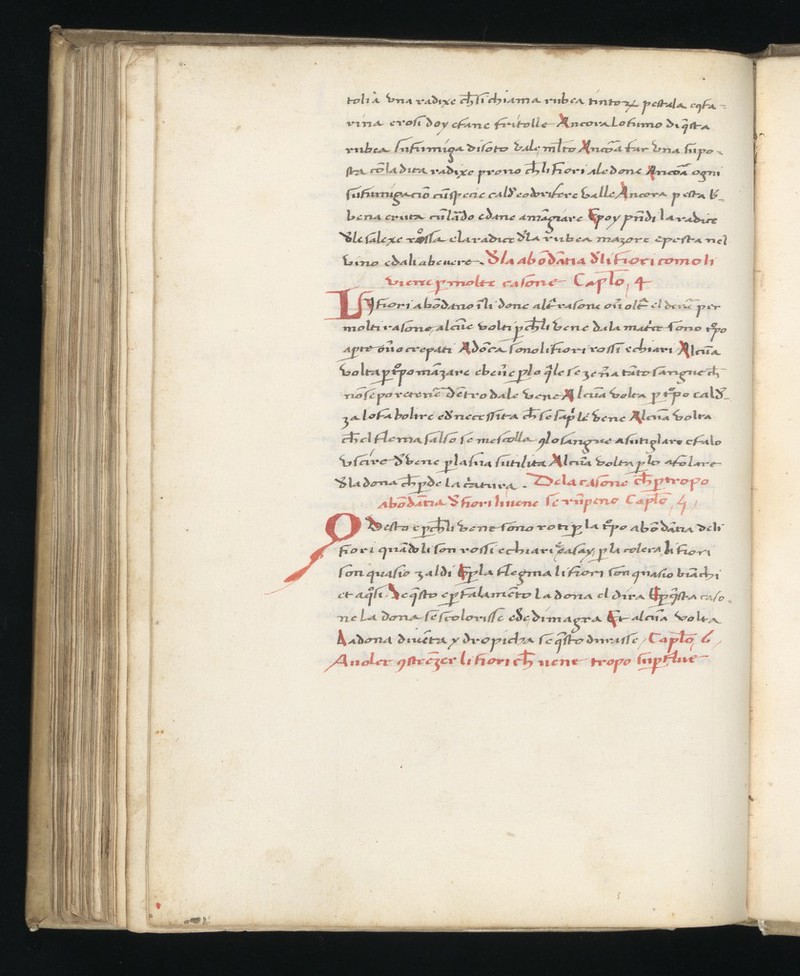 tolia vna radixe ch̄ si chiama rubea tintoꝝ pestala cq̄ fa-
rina erosi doy efane fritolle Ancora lo fumo di q̄sta
rubea sufumiga disoto vale ml̄to Ancōa far vna supo-
sta cō la dita radixe prouo ch̄ li fiori ale done Ancōa ogni
sufumigaciō cū spe cie cald̄ eodorifere valle Ancora pesta
bena eruta cū lādo edane amāgiare Epoy pn̄di la radice
d̄le salexe rossa ela radice d̄la rubea mazore epesta nel
vino edali abeuere. D̄la abōdātia d̄li fiori como li
viene ꝑ molte casone Capl̄o 4
Li fiori abōdano ī li done alt̄ rasone per
molti rasone, alcūe volti ꝑ ch̄ li vene dala mat̄ce sono tpo
aperte ouo crepati Adōca sono li fiori rossi echiari Alcūa
volta ꝑ tpo māzare ebeuē e ꝑlo q̄le se zen̄a tāto sangue ch̄
nō se po retenē dētro dale vene Alcūa volta ꝑ tpo cald̄
za lo fa bolire ed necessita ch̄ se sap̄ le vene Alcūa volta
ch̄ el flema salso se mescolla q̄lo sangue asutiglare efalo
vscire d̄ vene ꝑ la sūa sutilita Alcūa volta ꝑ lo afolare
d̄la dona ch̄ ꝑde la c̄atura. Dela casone ch̄ ꝑ tropo
abōdātia d̄ fiori li uene se rūpeno Capl̄o 5
Questo e ꝑch̄ li vene sono roti ꝑ la tpo abōdātia deli
fiori quādo li son rossi echiari asay, ꝑ la colera li fiori
son quasio zaldi Eꝑ la flegma li fiori son quasio biāchi
et aq̄si. De q̄sto eꝑ falamēto la dona el dira Eꝑ q̄sta caso-
ne la dona se scolorisse ede dimagra Et alcūa volta
La dona diuēta ydropicha se q̄sto durasse, Capl̄o 6
A voler 9strēzer li fiori ch̄ uene tropo suꝑflue